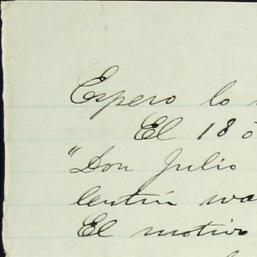 Espero lo
El 18
"Don Julio
lentin wa
El motivo